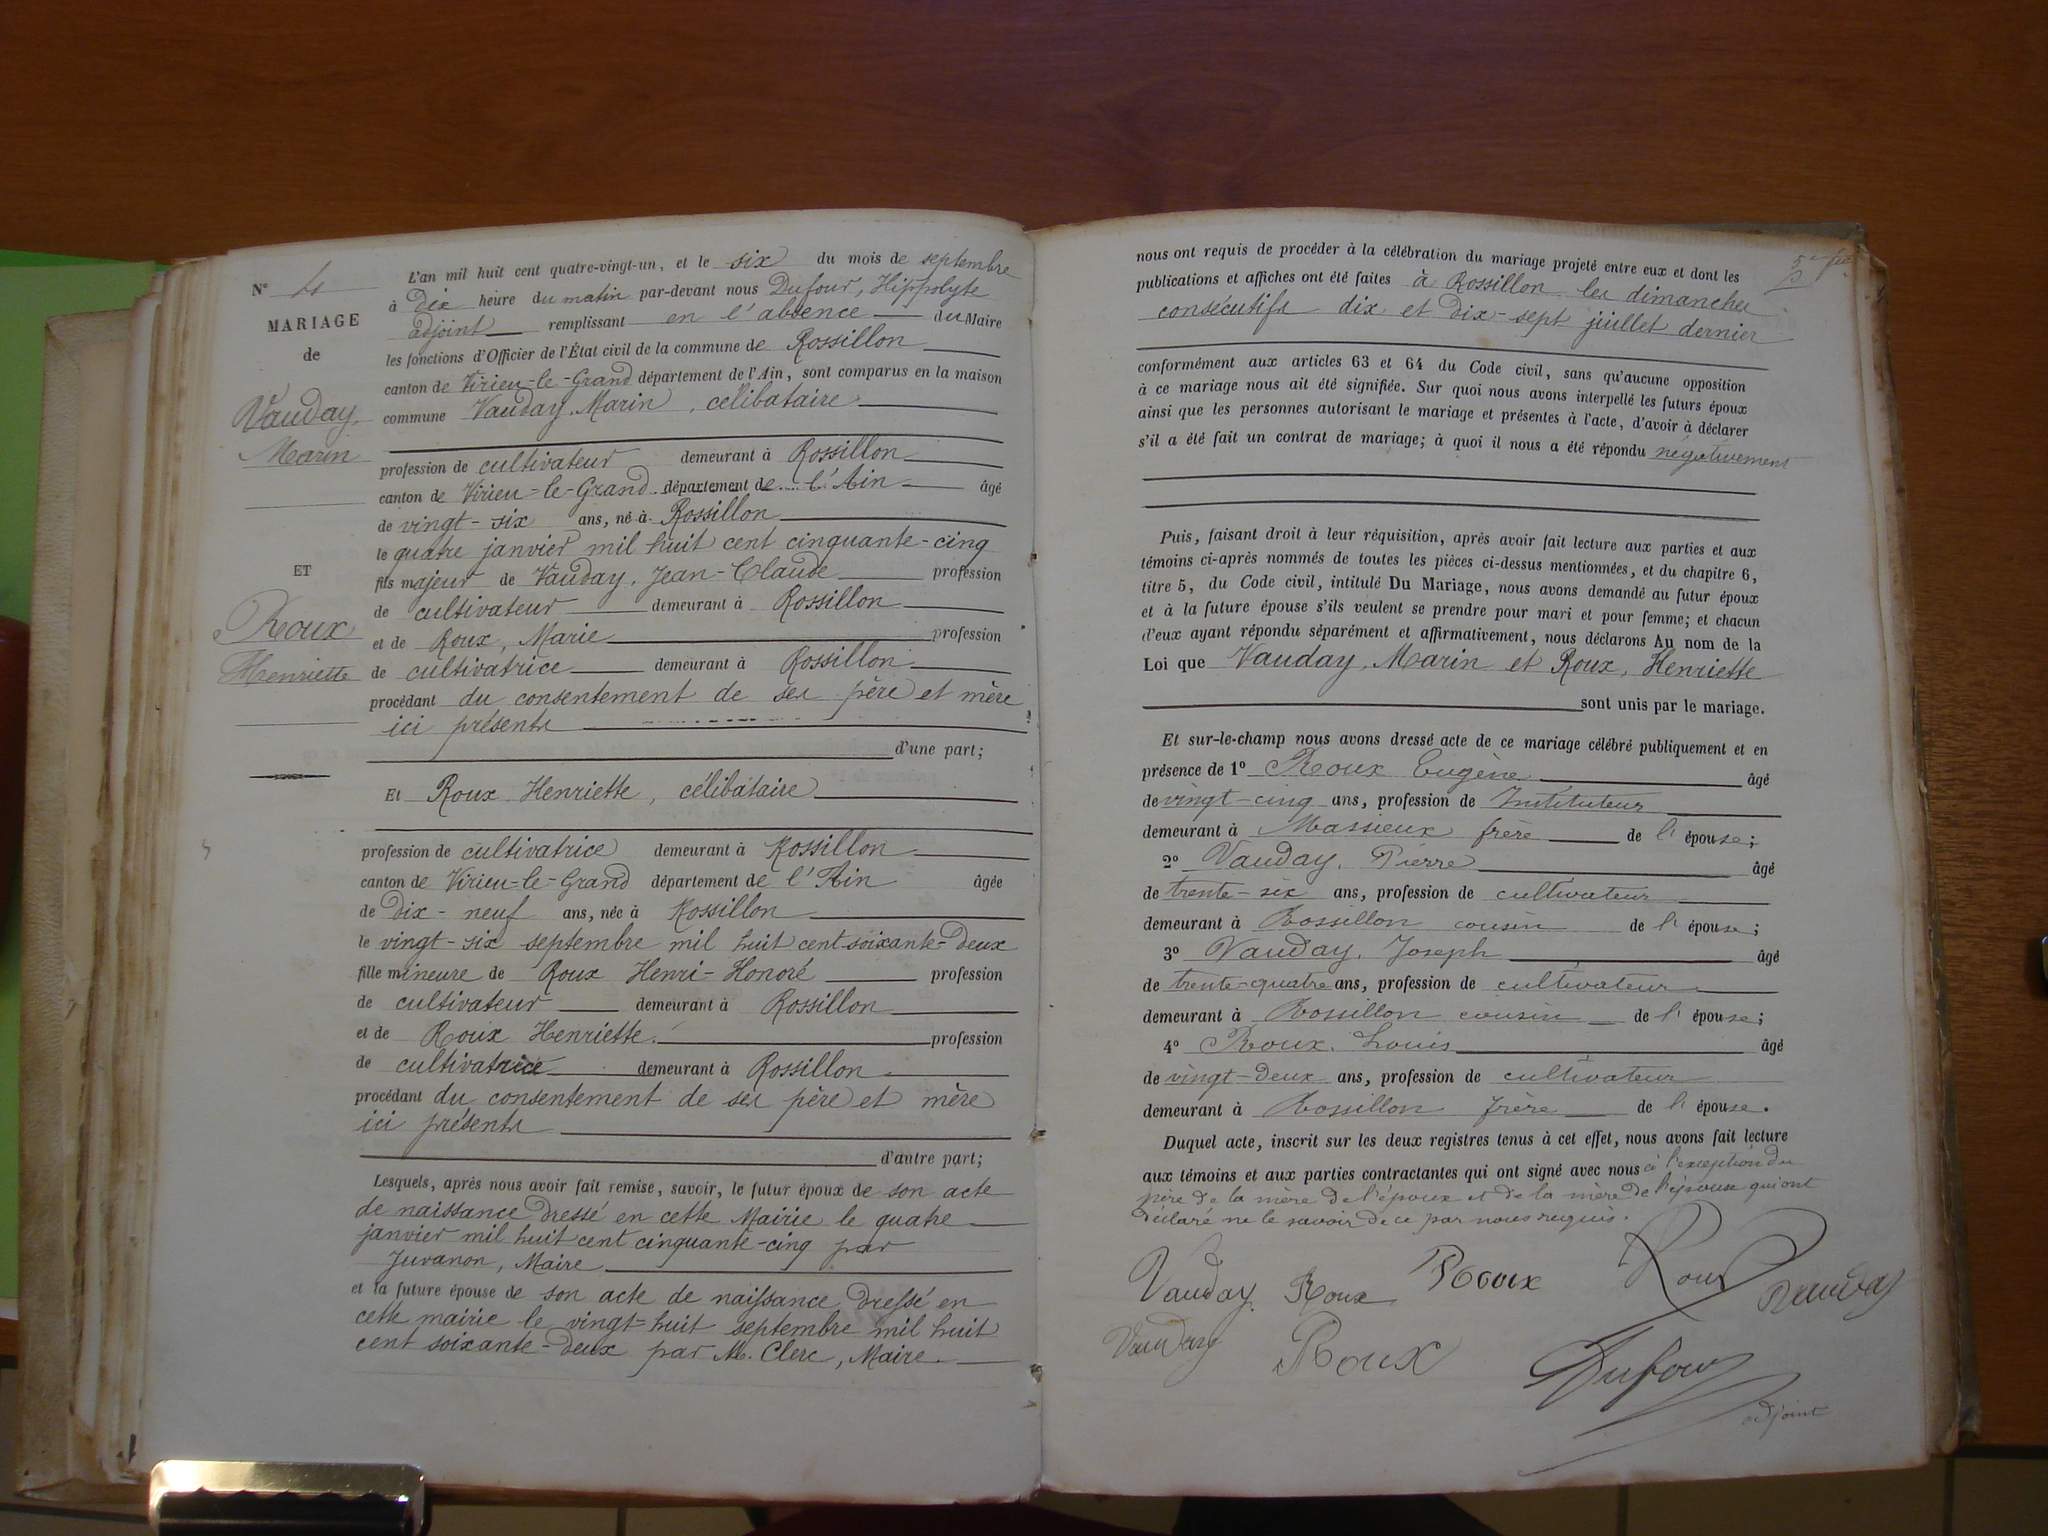 N° 4
MARIAGE
de
Vauday,
Marin
ET
Roux
Henriette
L'an mil huit cent quatre-vingt-un, et le six du mois de septembre
à Dix heure du matin par-devant nous Dufour, Hippolyte
adjoint remplissant en l'absence du Maire
les fonctions d'Officier de l'État civil de la commune de Rossillon
canton de Virieu-le-Grand département de l'Ain, sont comparus en la maison
commune Vauday, Marin, célibataire
profession de cultivateur demeurant à Rossillon
canton de Virieu-le-Grand département de l'Ain âgé
de vingt-six ans, né à Rossillon
le quatre janvier mil huit cent cinquante-cinq
fils majeur de Vauday, Jean-Claude profession
de cultivateur demeurant à Rossillon
et de Roux, Marie profession
de cultivatrice demeurant à Rossillon
procédant du consentement de ses père et mère
ici présents
d'une part;
Et Roux Henriette, célibataire
profession de cultivatrice demeurant à Rossillon
canton de Virieu-le-Grand département de l'Ain âgée
de Dix-neuf ans, née à Rossillon
le vingt-six septembre mil huit cent soixante-Deux
fille mineure de Roux Henri-Honoré profession
de cultivateur demeurant à Rossillon
et de Roux Henriette profession
de cultivatrice demeurant à Rossillon
procédant du consentement de ses père et mère
ici présents
d'autre part;
Lesquels, après nous avoir fait remise, savoir, le futur époux de son acte
de naissance Dressé en cette Mairie le quatre
janvier mil huit cent cinquante-cinq par
Juvanon, Maire
et la future épouse de son acte de naissance Dressé en
cette mairie le vingt-huit septembre mil huit
cent soixante-Deux par M. Clerc, Maire.
nous ont requis de procéder à la célébration du mariage projeté entre eux et dont les
publications et affiches ont été faites à Rossillon les dimanches
consécutifs dix et Dix-sept juillet dernier
conformément aux articles 63 et 64 du Code civil, sans qu'aucune opposition
à ce mariage nous ait été signifiée. Sur quoi nous avons interpellé les futurs époux
ainsi que les personnes autorisant le mariage et présentes à l'acte, d'avoir à déclarer
s'il a été fait un contrat de mariage; à quoi il nous a été répondu négativement
Puis, faisant droit à leur réquisition, après avoir fait lecture aux parties et aux
témoins ci-après nommés de toutes les pièces ci-dessus mentionnées, et du chapitre 6,
titre 5, du Code civil, intitulé Du Mariage, nous avons demandé au futur époux
et à la future épouse s'ils veulent se prendre pour mari et pour femme; et chacun
d'eux ayant répondu séparément et affirmativement, nous déclarons Au nom de la
Loi que Vauday, Marin et Roux, Henriette
sont unis par le mariage.
Et sur-le-champ nous avons dressé acte de ce mariage célébré publiquement et en
présence de 1° Roux Eugène âgé
de vingt-cinq ans, profession de Instituteur
demeurant à Massieux frère de l'épouse;
2° Vauday, Pierre âgé
de trente-six ans, profession de cultivateur
demeurant à Rossillon cousin de l'épouse;
3° Vauday, Joseph âgé
de trente-quatre ans, profession de cultivateur
demeurant à Rossillon cousin de l'épouse;
4° Roux, Louis âgé
de vingt-Deux ans, profession de cultivateur
demeurant à Rossillon frère de l'épouse.
Duquel acte, inscrit sur les deux registres tenus à cet effet, nous avons fait lecture
aux témoins et aux parties contractantes qui ont signé avec nous à l'exception du
père de la mère de l'époux et de la mère de l'épouse qui ont
Déclaré ne le savoir de ce par nous requis.
Vauday Roux Roux Roux Vauday
Vauday Roux Dufour
adjoint